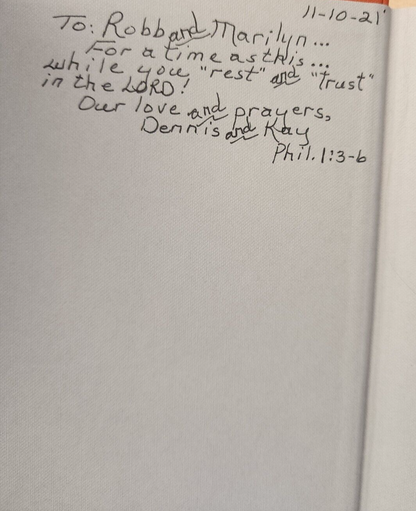 11-10-21
To: Robb and Marilyn...
For a time as this...
while you "rest" and "trust"
in the LORD!
Our love and prayers,
Dennis and Kay
Phil. 1:3-6